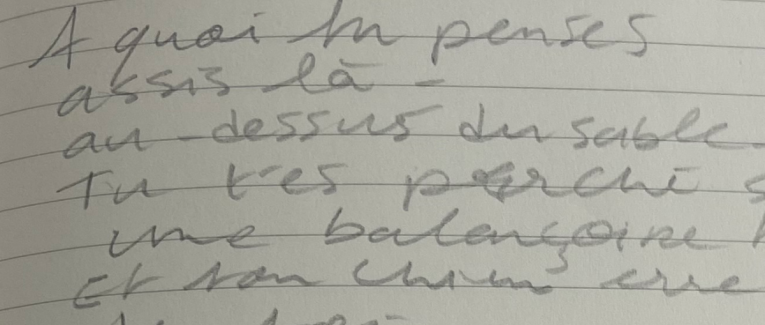 A quoi tu penses
assis là -
au-dessus du sable
Tu t'es perché s
une balançoire
Et ton chien erre